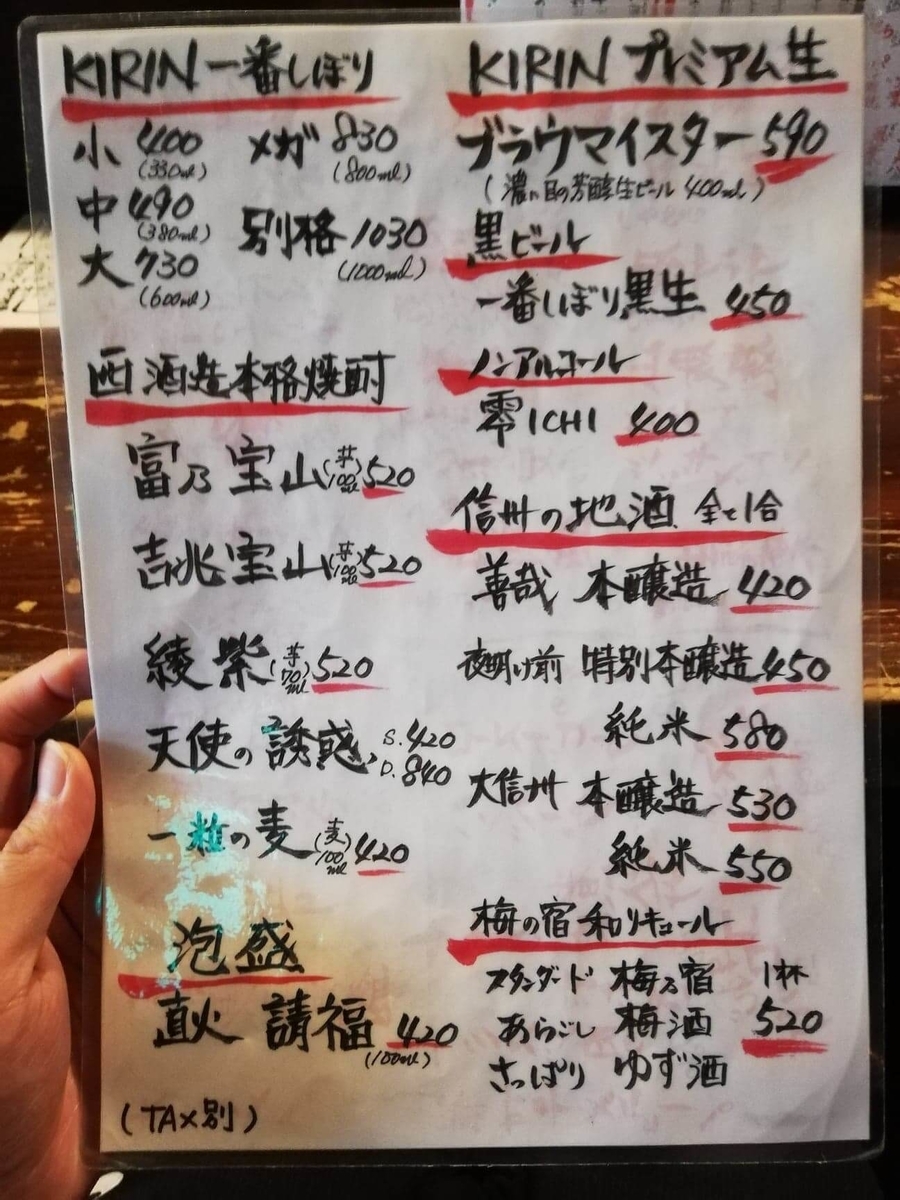 KIRIN 一番しぼり
小 400
(350ml)
中 490
(380ml)
大 730
(600ml)
メガ 830
(800ml)
別格 1030
(1000ml)
西酒造本格焼酎
富乃宝山(芋100ml)520
吉兆宝山(芋100ml)520
綾紫(芋70ml)520
天使の誘惑 S.420
D.840
一粒の麦(麦100ml)420
泡盛
直火 請福 420
(100ml)
(TAX別)
KIRIN プレミアム生
ブラウマイスター 590
(濃い目の芳醇生ビール 400ml)
黒ビール
一番しぼり黒生 450
ノンアルコール
零ICHI 400
信州の地酒 全て1合
善哉 本醸造 420
夜明け前 特別本醸造 450
純米 580
大信州 本醸造 530
純米 550
梅の宿 和リキュール
スタンダード 梅乃宿 1杯
あらごし 梅酒 520
さっぱり ゆず酒